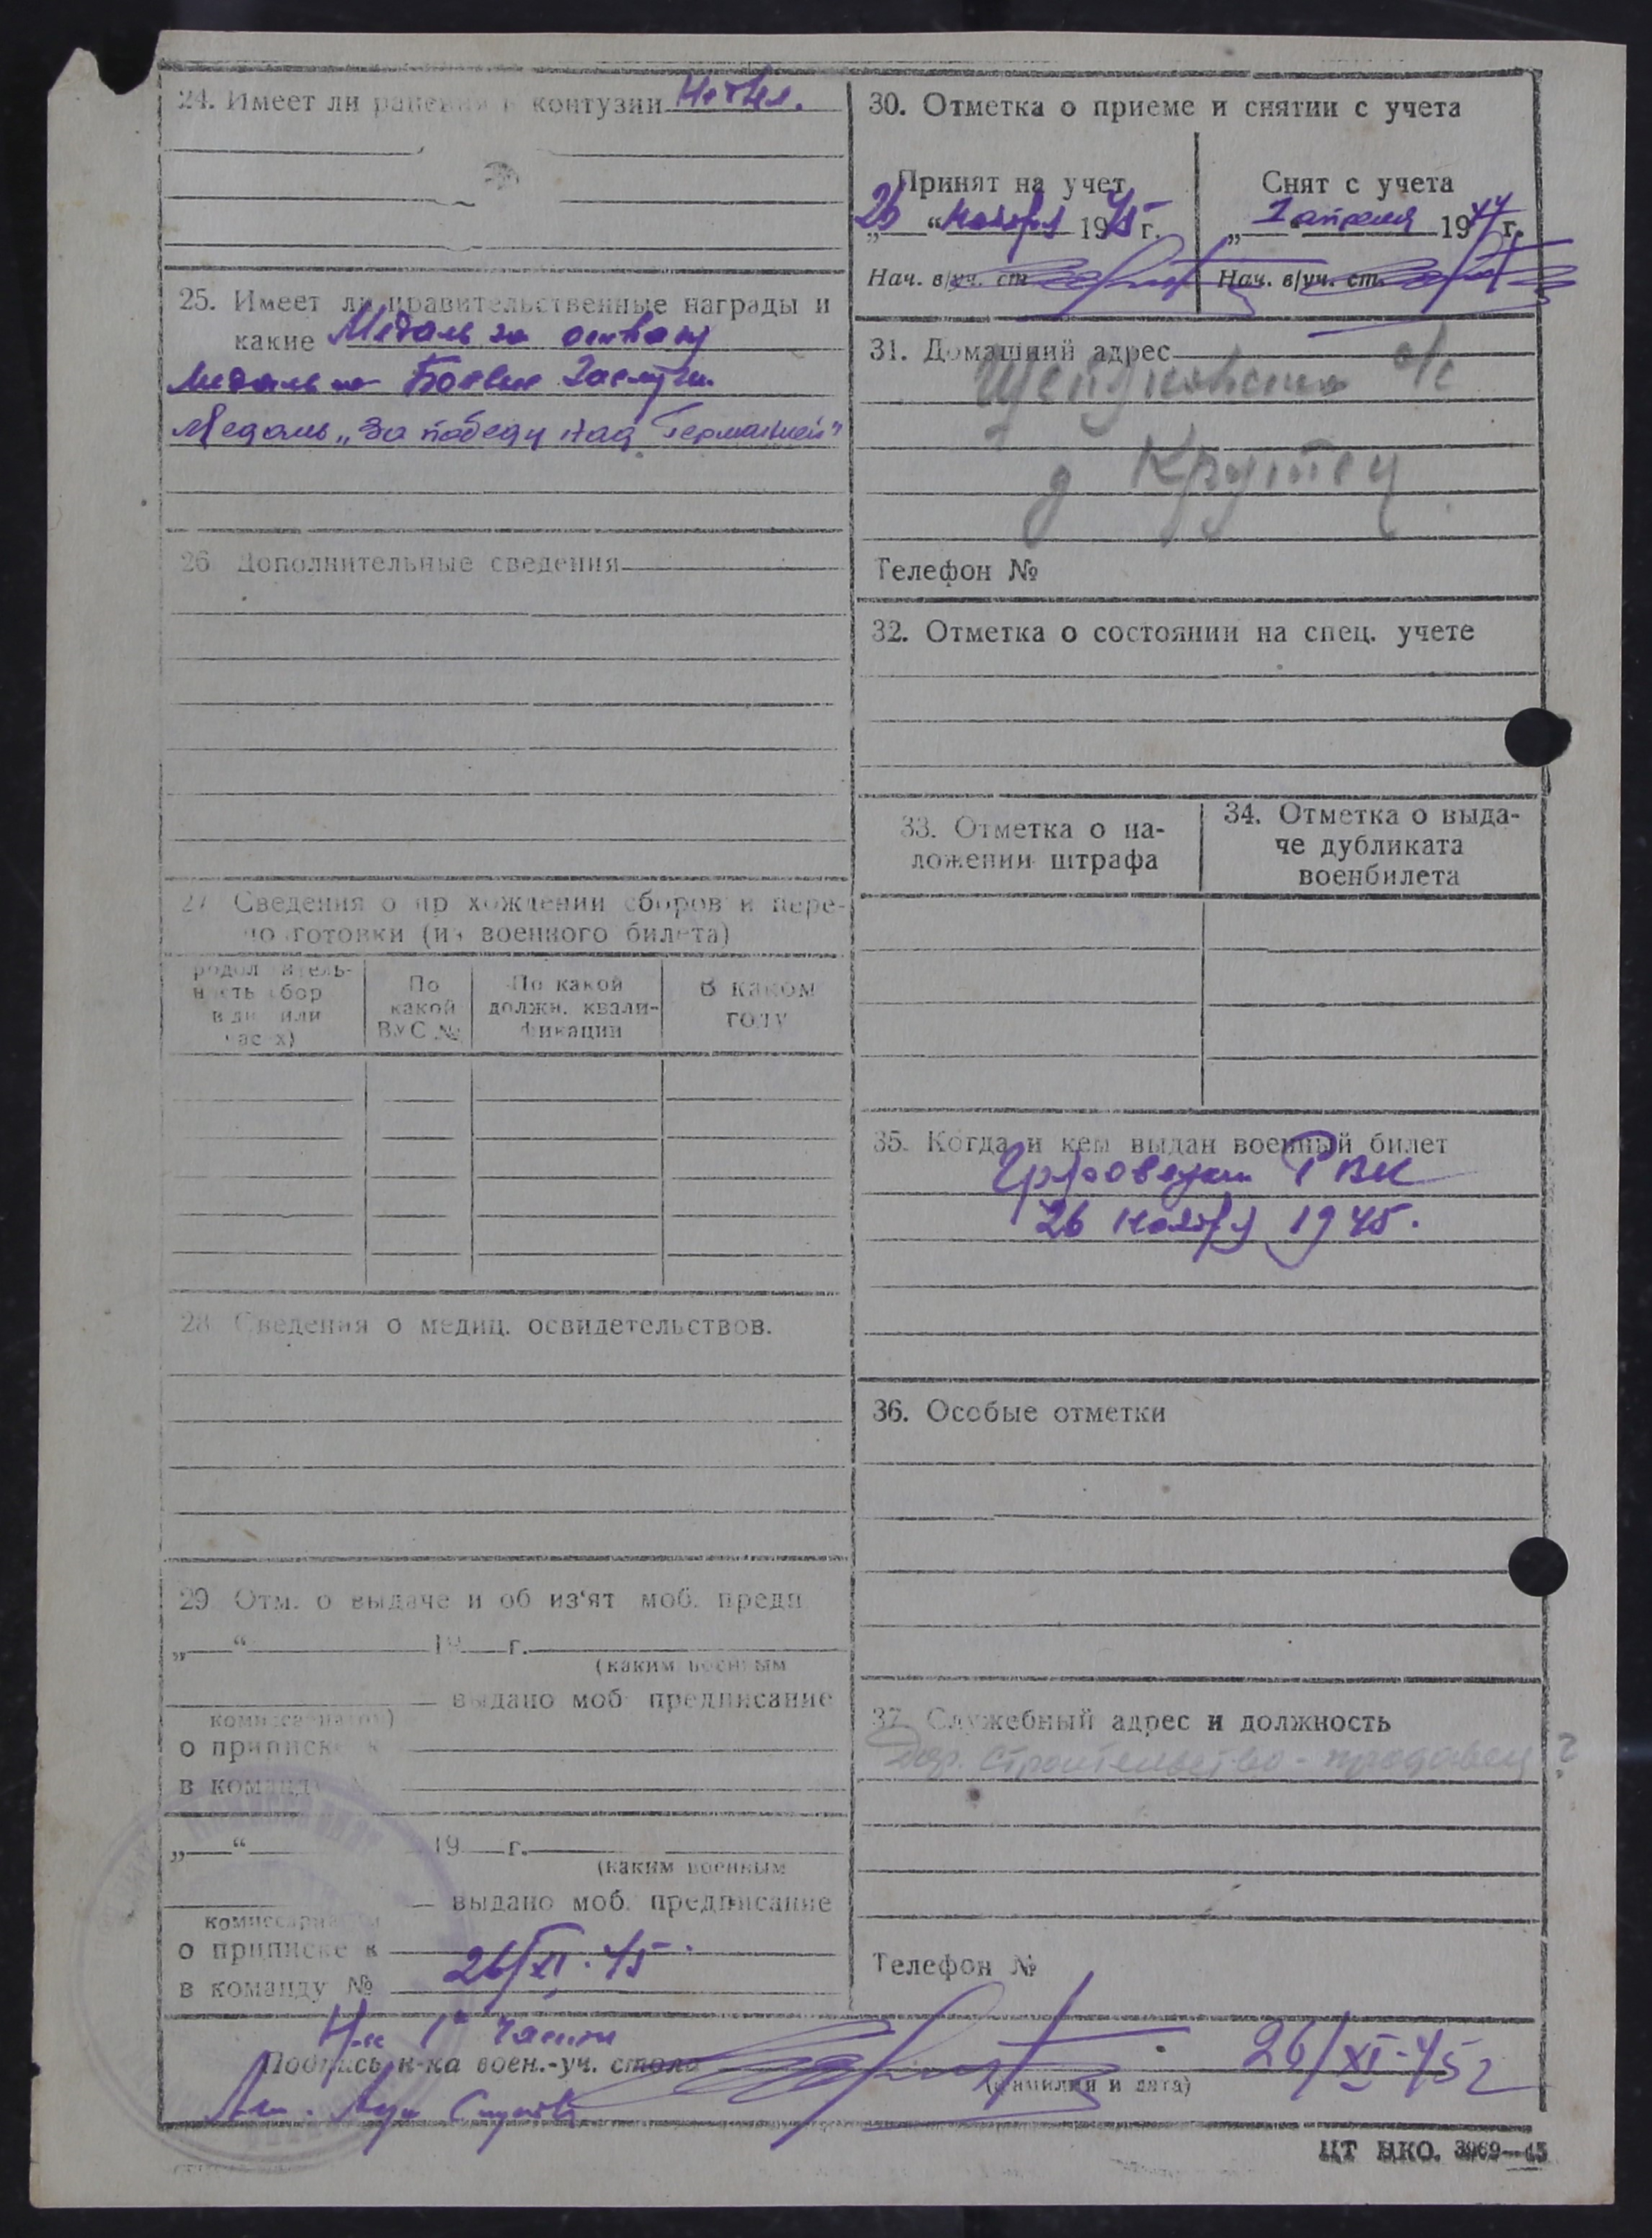 24. Имеет ли ранения и контузии Не имел.
25. Имеет ли правительственные награды и
какие Медаль за отвагу
Медаль за Боевые Заслуги.
Медаль „За победу над Германией"
26. Дополнительные сведения
27. Сведения о прохождении сборов и пере-
подготовки (из военного билета)
Продолжитель-
ность сбор.
в дн. или
часах)
По
какой
ВУС №
По какой
должн. квали-
фикации
В каком
году
28. Сведения о медиц. освидетельствов.
29. Отм. о выдаче и об из‘ят. моб. предп.
„ “ 19 г.
(каким военным
выдано моб. предписание
комиссариатом)
о приписке к
в команду №
„ “ 19 г.
(каким военным
выдано моб. предписание
комиссариатом
о приписке к
в команду №
26/XI.45.
30. Отметка о приеме и снятии с учета
Принят на учет
26 “ ноября 1945 г.
Нач. в/уч. ст.
Снят с учета
„ 1 апреля 1947 г.
Нач. в/уч. ст.
31. Домашний адрес
с/с
д Крутец
Телефон №
32. Отметка о состоянии на спец. учете
33. Отметка о на-
ложении штрафа
34. Отметка о выда-
че дубликата
военбилета
35. Когда и кем выдан военный билет
РВК
26 ноября 1945.
36. Особые отметки
37. Служебный адрес и должность
Дор. строительство - продавец ?
Телефон №
Н-к 1й части
Подпись н-ка воен.-уч. стола
26/XI-45г
(фамилия и дата)
ЦТ НКО. 3969—45